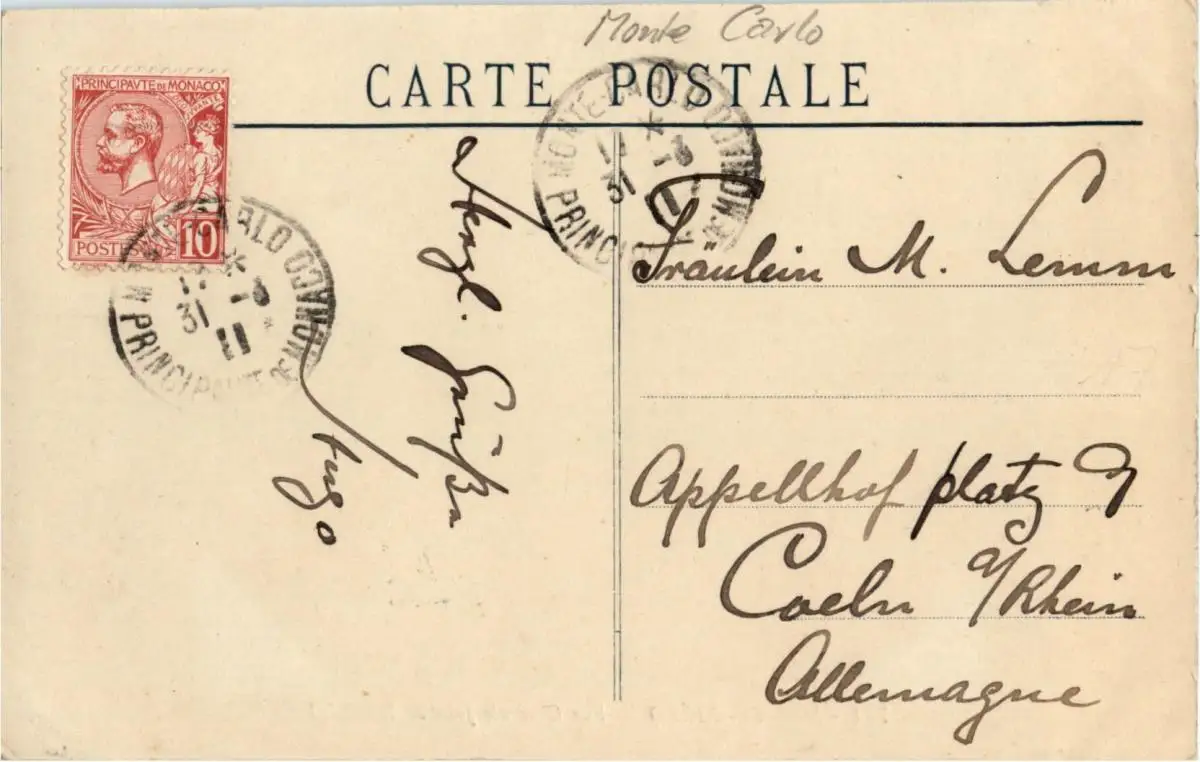 Monte Carlo
CARTE POSTALE
PRINCIPAVTE DE MONACO
POSTES
10
MONTE-CARLO
31 11
PRINCIPAUTE DE MONACO
MONTE-CARLO
31 11
PRINCIPAUTE DE MONACO
Herzl. Grüße
Hugo
Fräulein M. Lemm
Appellhofplatz 7
Coeln a/Rhein
Allemagne